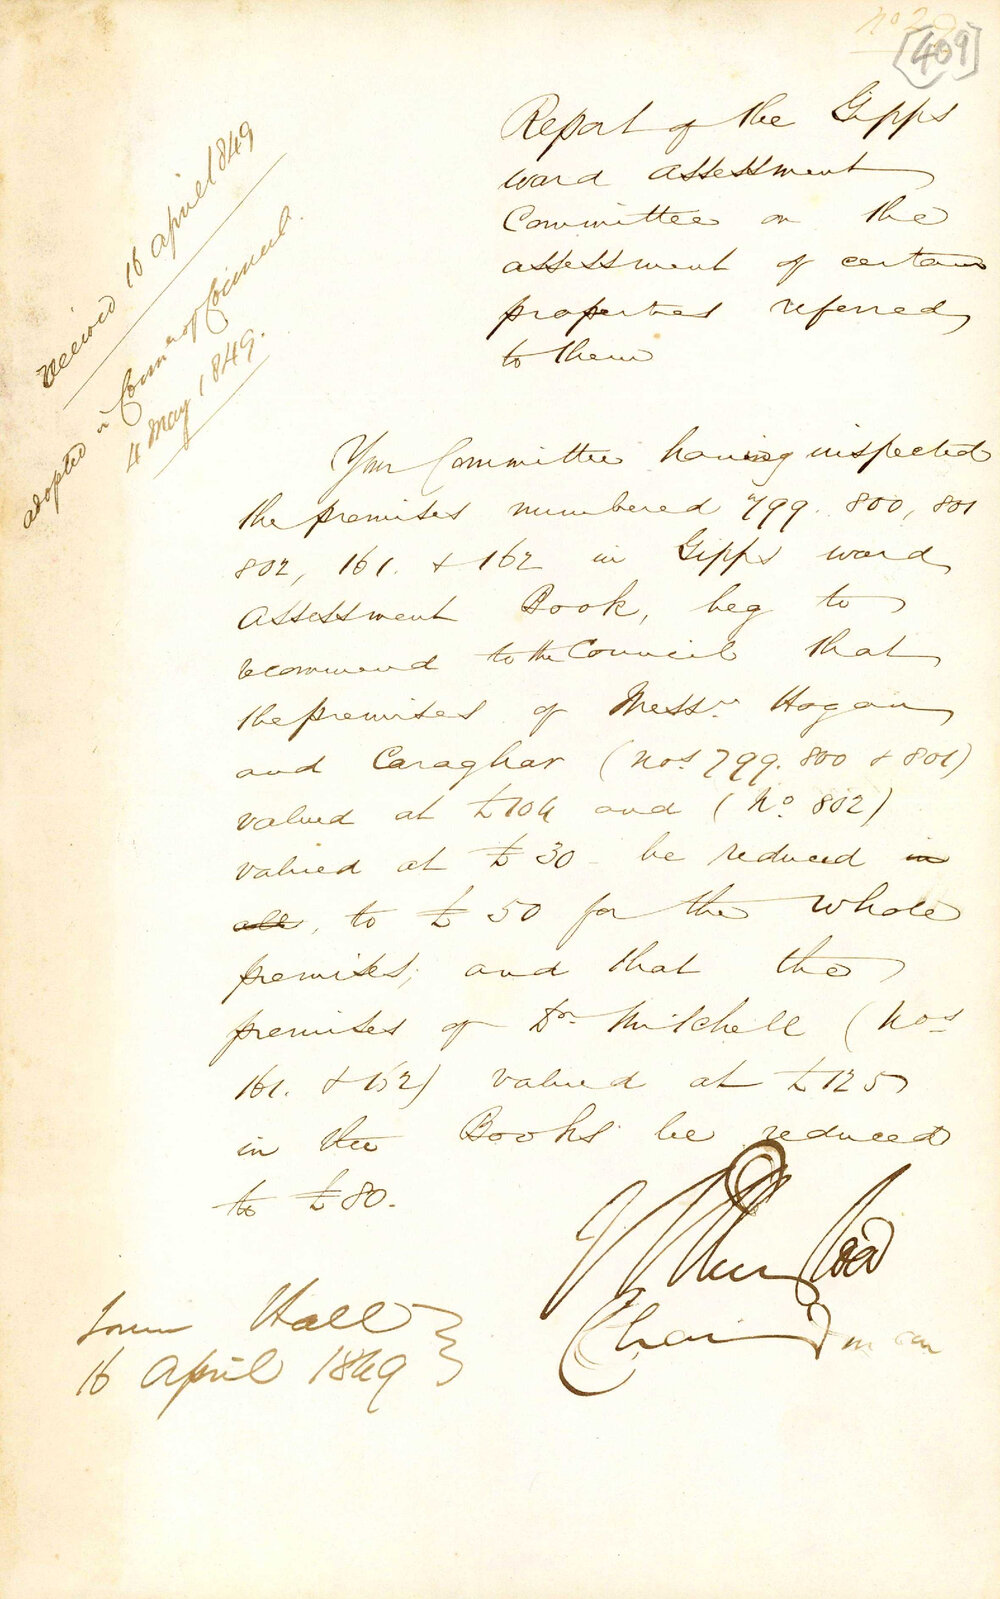 No 29
[409]
Received 16 April 1849
adopted in Commee of Council.
4 May 1849.
Report of the Gipps
ward assessment
Committee on the
assessment of certain
properties referred
to them
Your Committee having inspected
the premises numbered 799. 800, 801
802, 161. & 162 in Gipps ward
Assessment Book, beg to
recommend to the Council that
the premises of Messrs Hogan
and Caraghar (Nos 799. 800 & 801)
valued at £104 and (No 802)
valued at £30 be reduced in
all, to £50 for the whole
premises, and that the
premises of Dr Mitchell (Nos
161. & 162) valued at £125
in the Books be reduced
to £80.
Chairman
Town Hall
16 April 1849